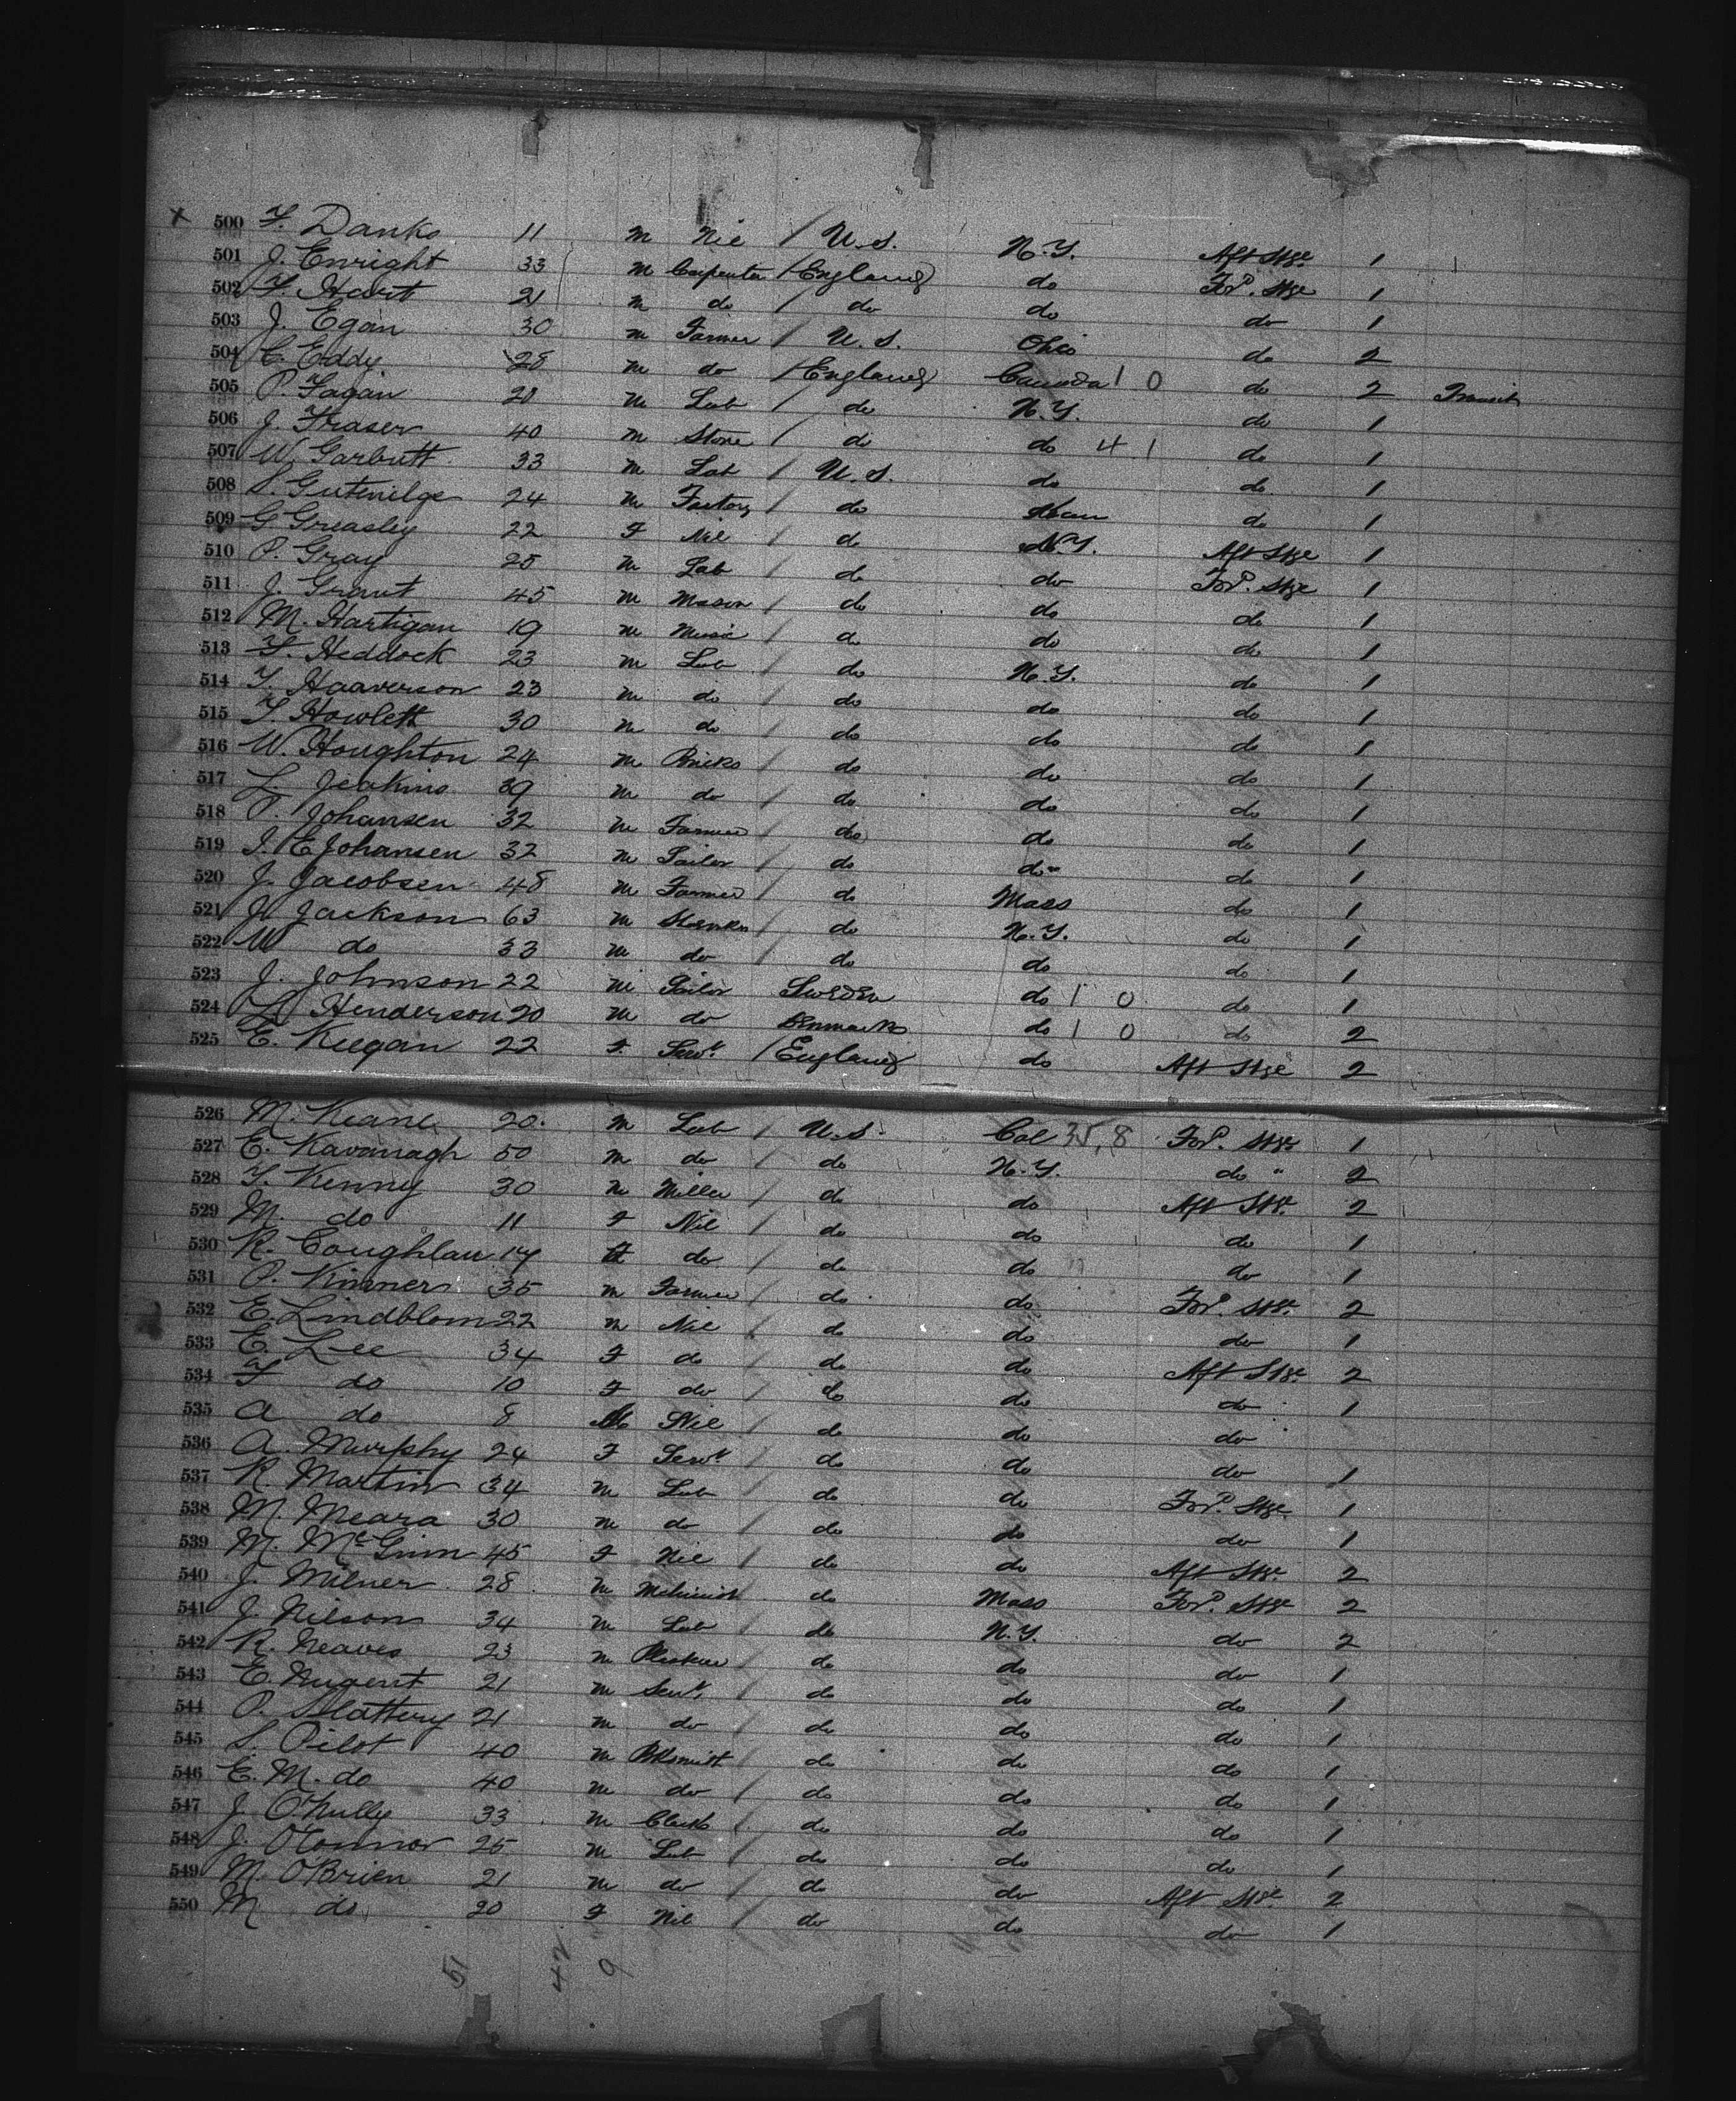 x 500 F. Danks 11 m Nil / U.S. N.Y. Aft Stge 1
501 J. Enright 33 m Carpenter / England do For'd. Stge 1
502 F. Hart 21 m do / do do do 1
503 J. Egan 30 m Farmer / U.S. Ohio do 2
504 C. Eddy 28 m do / England Canada 1 0 do 2 Transit
505 P. Fagan 28 m Lab / do N.Y. do 1
506 J. Fraser 40 m Stone / do do 4 1 do 1
507 W. Garbutt 33 m Lab / U.S. do do 1
508 S. 24 m Factory / do do 1
509 G Greasley 22 F Nil / do N.Y. Aft Stge 1
510 P. Gray 25 m Lab / do do For'd. Stge 1
511 J. Grant 45 m Mason / do do do 1
512 M. Hartigan 19 m Music / do do do 1
513 F. Heddock 23 m Lab / do N.Y. do 1
514 T. Haaverson 23 m do / do do do 1
515 T. Howlett 30 m do / do do do 1
516 W. Houghton 24 m Bricks / do do do 1
517 L Jeakins 39 m do / do do do 1
518 P. Johansen 32 m Farmer / do do do 1
519 J. E Johansen 32 m Sailor / do do do 1
520 J. Jacobsen 48 m Farmer / do Mass do 1
521 J. Jackson 63 m / do N.Y. do 1
522 W do 33 m do / do do do 1
523 J. Johnson 22 m Sailor Sweden do 1 0 do 1
524 L Henderson 20 m do Denmark do 1 0 do 2
525 E. Keegan 22 F. Servt / England do Aft Stge 2
526 M. Keane 20. m Lab / U.S. Cal 35,8 For'd. Stge 1
527 E. Kavanagh 50 m do / do N.Y. do " 2
528 T. Kenny 30 m Miller / do do Aft Stge 2
529 M. do 11 F Nil / do do do 1
530 K. Coughlan 17 do / do do do 1
531 P. Kinner 35 m Farmer / do do For'd. Stge 2
532 E. Lindblom 22 m Nil / do do do 1
533 E. Lee 34 F do / do do Aft Stge 2
534 F do 10 F do / do do do 1
535 A do 8 M Nil / do do do
536 A. Murphy 24 F Servt / do do do 1
537 R. Martin 34 m Lab / do do For'd. Stge 1
538 M. Meara 30 m do / do do do 1
539 M. McGinn 45 F Nil / do do Aft Stge 2
540 J. Milner 28 m do Mass For'd. Stge 2
541 J. Nilson 34 m Lab / do N.Y. do 2
542 R. Neaves 23 m / do do do 1
543 E. Nugent 21 m Servt / do do do 1
544 P. Slattery 21 m do / do do do 1
545 S. Pilot 40 m Blksmith / do do do 1
546 E. M. do 40 m do / do do do 1
547 J. O'Nully 33 m Clerk / do do do 1
548 J. O'Connor 25 m Lab / do do do 1
549 M. O'Brien 21 m do / do do Aft Stge 2
550 M do 20 F Nil / do do do 1
51 42 9